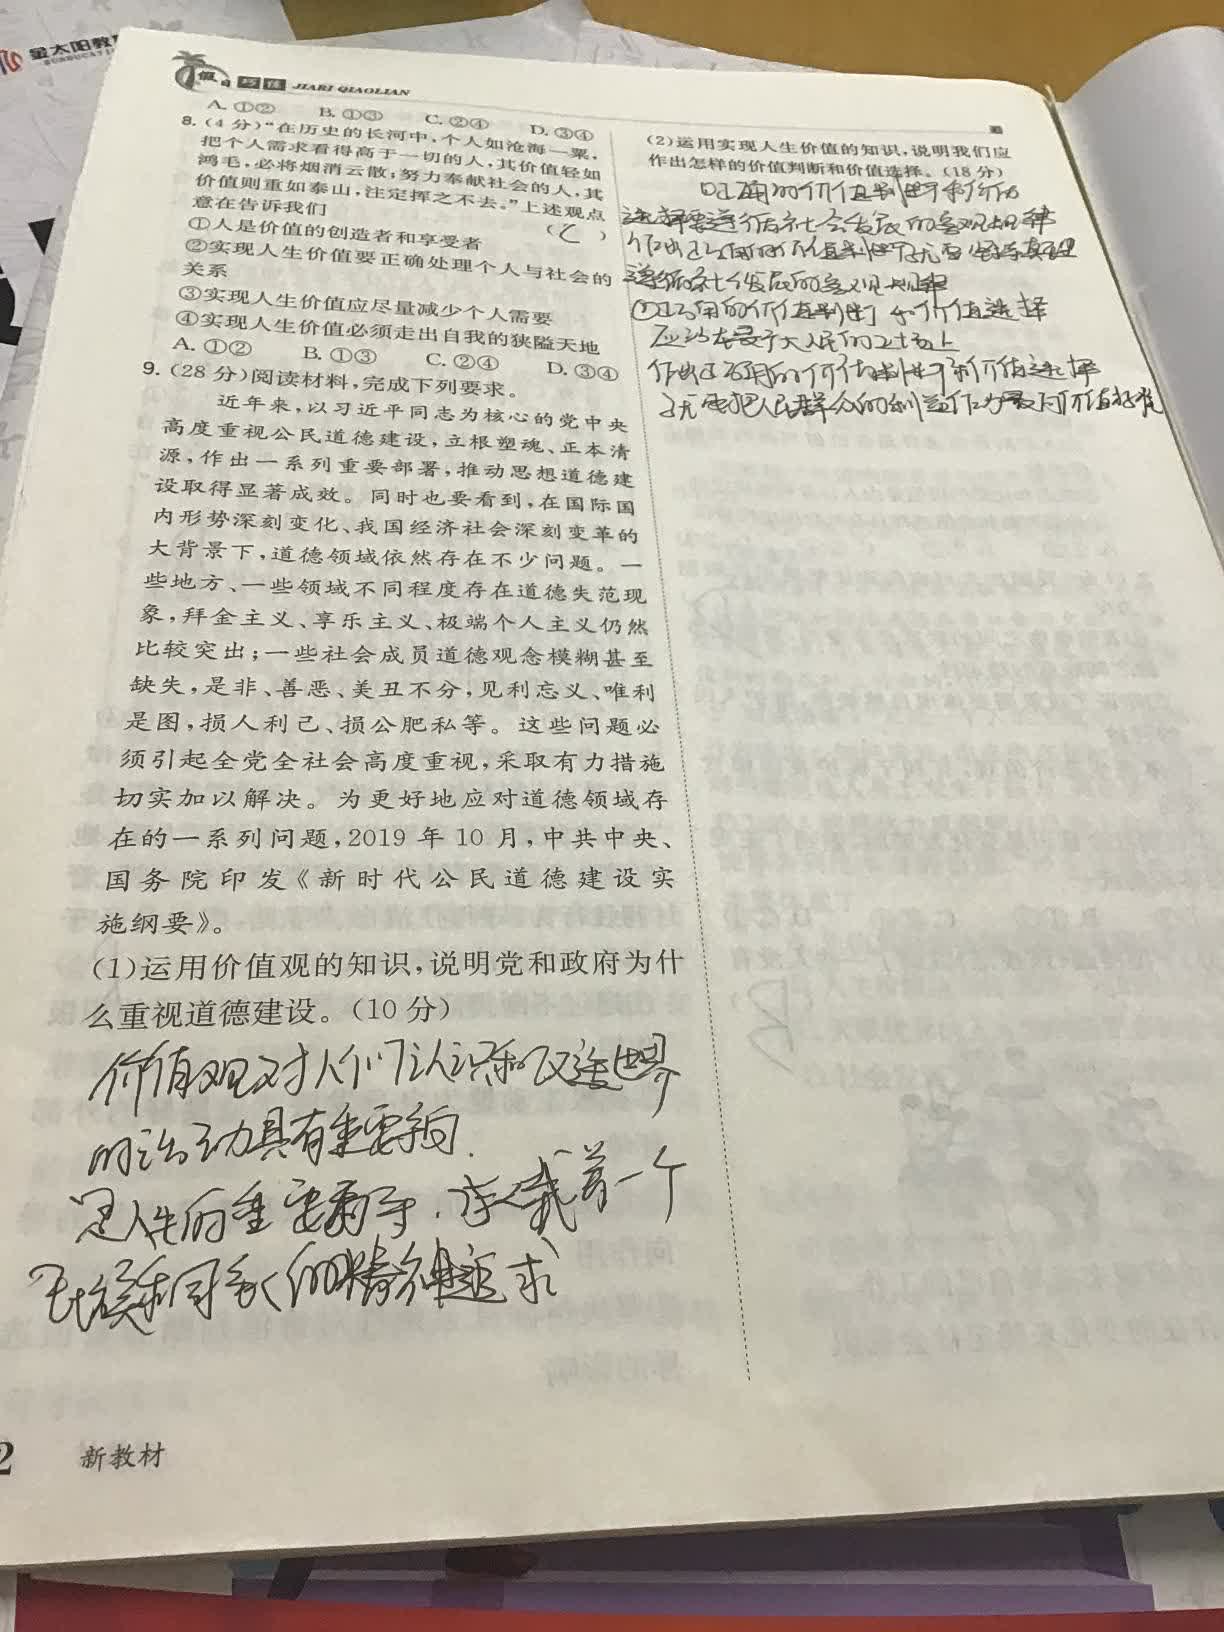 金太阳教
假日巧练 JIARI QIAOLIAN
A. ①② B. ①③ C. ②④ D. ③④
8. (4 分)“在历史的长河中,个人如沧海一粟,
把个人需求看得高于一切的人,其价值轻如
鸿毛,必将烟消云散;努力奉献社会的人,其
价值则重如泰山,注定挥之不去。”上述观点
意在告诉我们 ( C )
①人是价值的创造者和享受者
②实现人生价值要正确处理个人与社会的
关系
③实现人生价值应尽量减少个人需要
④实现人生价值必须走出自我的狭隘天地
A. ①② B. ①③ C. ②④ D. ③④
9. (28 分)阅读材料,完成下列要求。
近年来,以习近平同志为核心的党中央
高度重视公民道德建设,立根塑魂、正本清
源,作出一系列重要部署,推动思想道德建
设取得显著成效。同时也要看到,在国际国
内形势深刻变化、我国经济社会深刻变革的
大背景下,道德领域依然存在不少问题。一
些地方、一些领域不同程度存在道德失范现
象,拜金主义、享乐主义、极端个人主义仍然
比较突出;一些社会成员道德观念模糊甚至
缺失,是非、善恶、美丑不分,见利忘义、唯利
是图,损人利己、损公肥私等。这些问题必
须引起全党全社会高度重视,采取有力措施
切实加以解决。为更好地应对道德领域存
在的一系列问题,2019 年 10 月,中共中央、
国务院印发《新时代公民道德建设实
施纲要》。
(1)运用价值观的知识,说明党和政府为什
么重视道德建设。(10 分)
价值观对人们认识和改造世界
的活动具有重要导向
是人生的重要向导.承载着一个
民族和国家的精神追求
2 新教材
(2)运用实现人生价值的知识,说明我们应
作出怎样的价值判断和价值选择。(18 分)
①正确的价值判断和价值
选择要遵循社会发展的客观规律
作出正确的价值判断
遵循社会发展的客观规律
②正确的价值判断和价值选择
应站在最广大人民的立场上
作出正确的价值判断和价值选择
就要把人民群众的利益作为最高价值标准